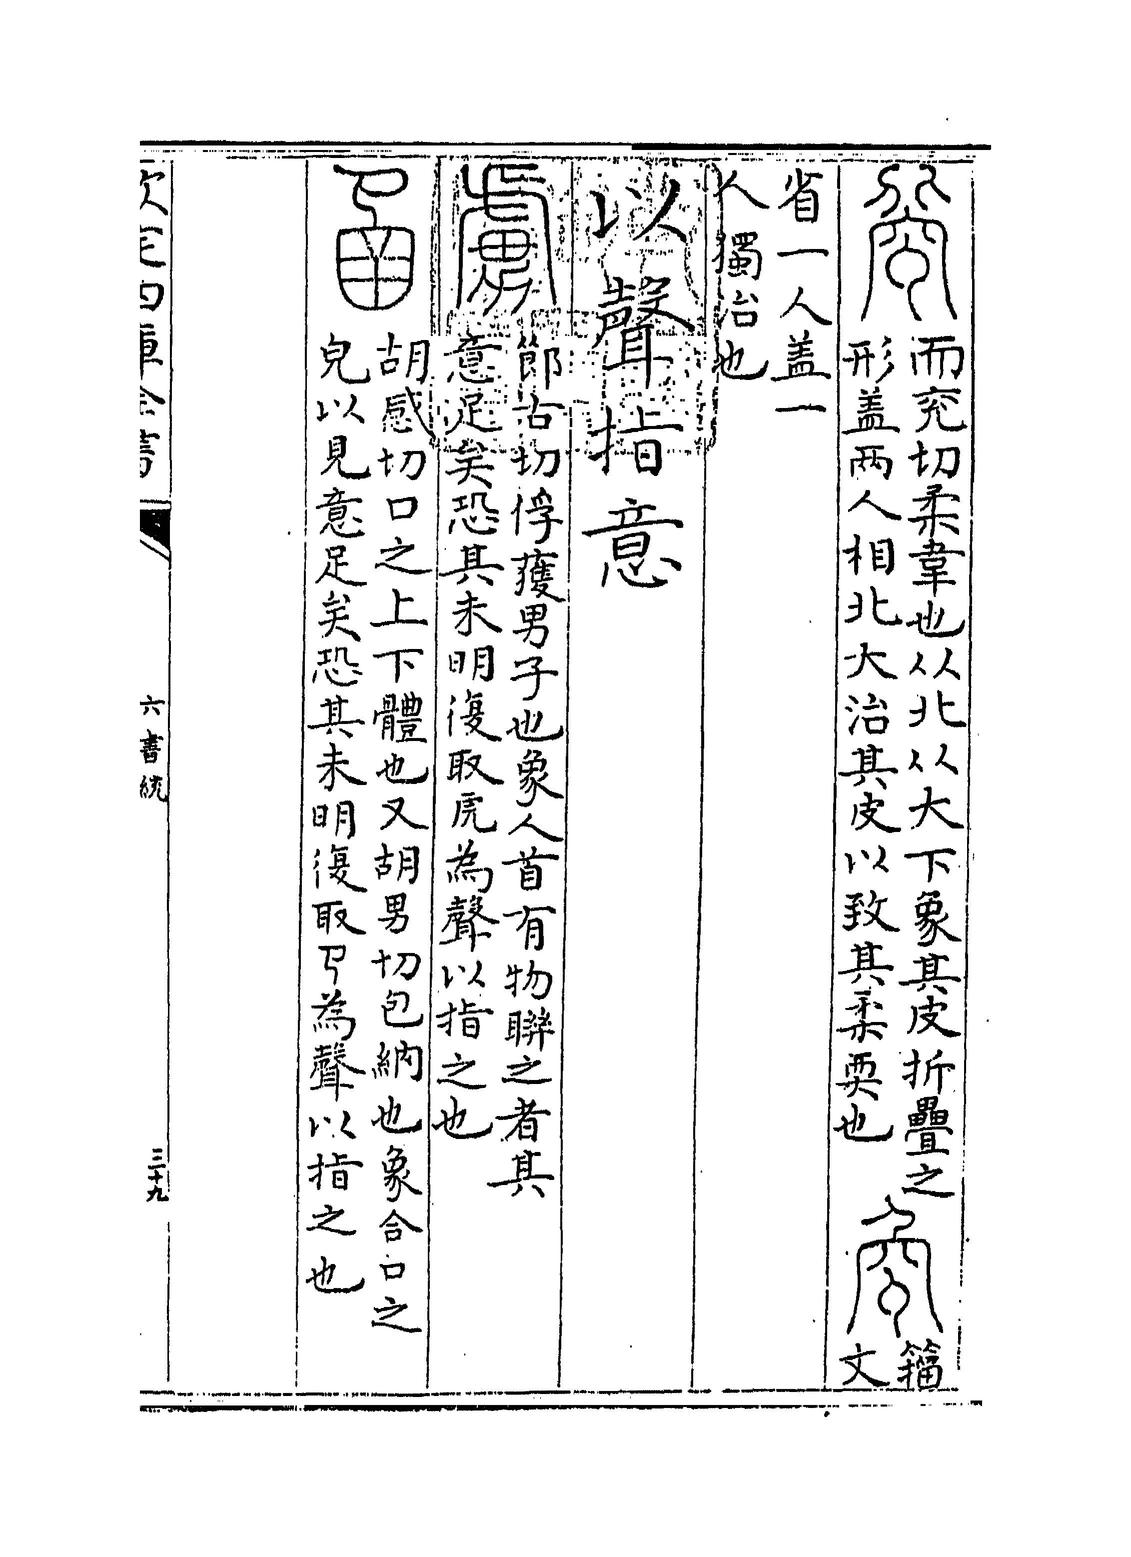 而兖切柔韋也从北从大下象其皮折疊之
形盖兩人相北大治其皮以致其柔耎也
籀
文
省一人盖一
人獨治也
以聲指意
節古切俘獲男子也象人首有物聯之者其
意足矣恐其未明復取虍為聲以指之也
胡感切口之上下體也又胡男切包納也象合口之
皃以見意足矣恐其未明復取𢎘為聲以指之也
欽定四庫全書
六書統
三十九